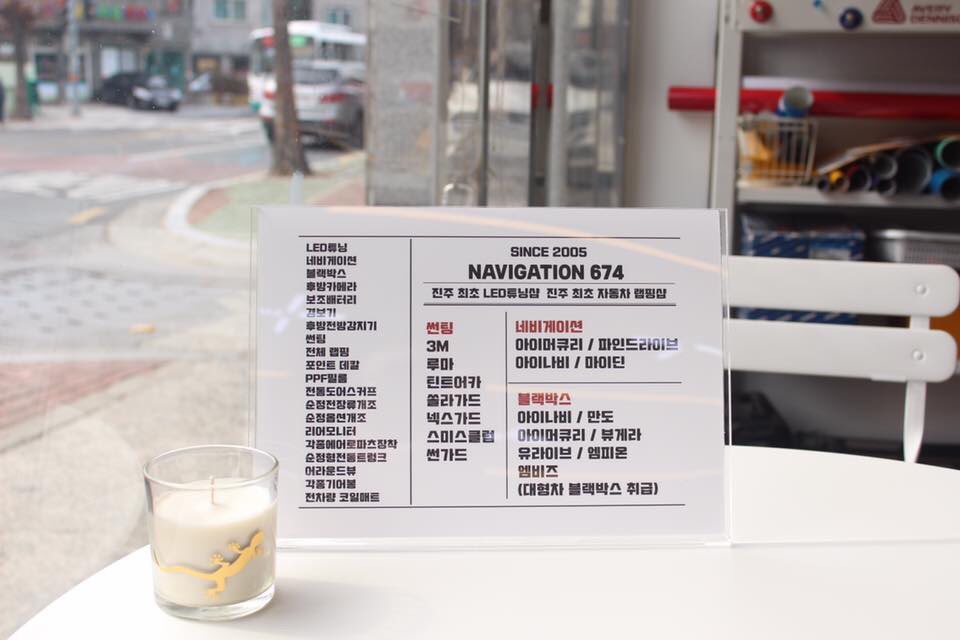 AVERY
DENNISON
LED튜닝
네비게이션
블랙박스
후방카메라
보조배터리
경보기
후방전방감지기
썬팅
전체 랩핑
포인트 데칼
PPF필름
전동도어스커프
순정전장류개조
순정옵션개조
리어모니터
각종에어로파츠장착
순정형전동트렁크
어라운드뷰
각종기어봉
전차량 코일매트
SINCE 2005
NAVIGATION 674
진주 최초 LED튜닝샵 진주 최초 자동차 랩핑샵
썬팅
3M
루마
틴트어카
쏠라가드
넥스가드
스미스클럽
썬가드
네비게이션
아이머큐리 / 파인드라이브
아이나비 / 마이딘
블랙박스
아이나비 / 만도
아이머큐리 / 뷰게라
유라이브 / 엠피온
엠비즈
(대형차 블랙박스 취급)